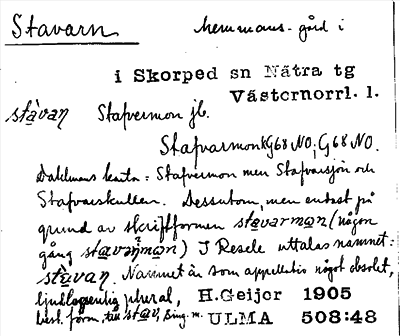 Stavarn hemmans-gård i
i Skorped sn Nätra tg
Västernorrl. l.
stàvaṇ Stafvermon jb.
Stafvarmon kG68 NO, G68 NO.
Dahlmans karta: Stafvermon men Stafvarsjön och
Stafvarskullen. Dessutom, men endast på
grund av skriftformen stavarmon (någon
gång stavaṇmon) I Resele uttalas namnet:
stàvaṇ. Namnet är som appellativ något obsolet,
ljudlagsenlig plural,
best. form, till stav, sing. m.
H.Geijer 1905
ULMA 508:48